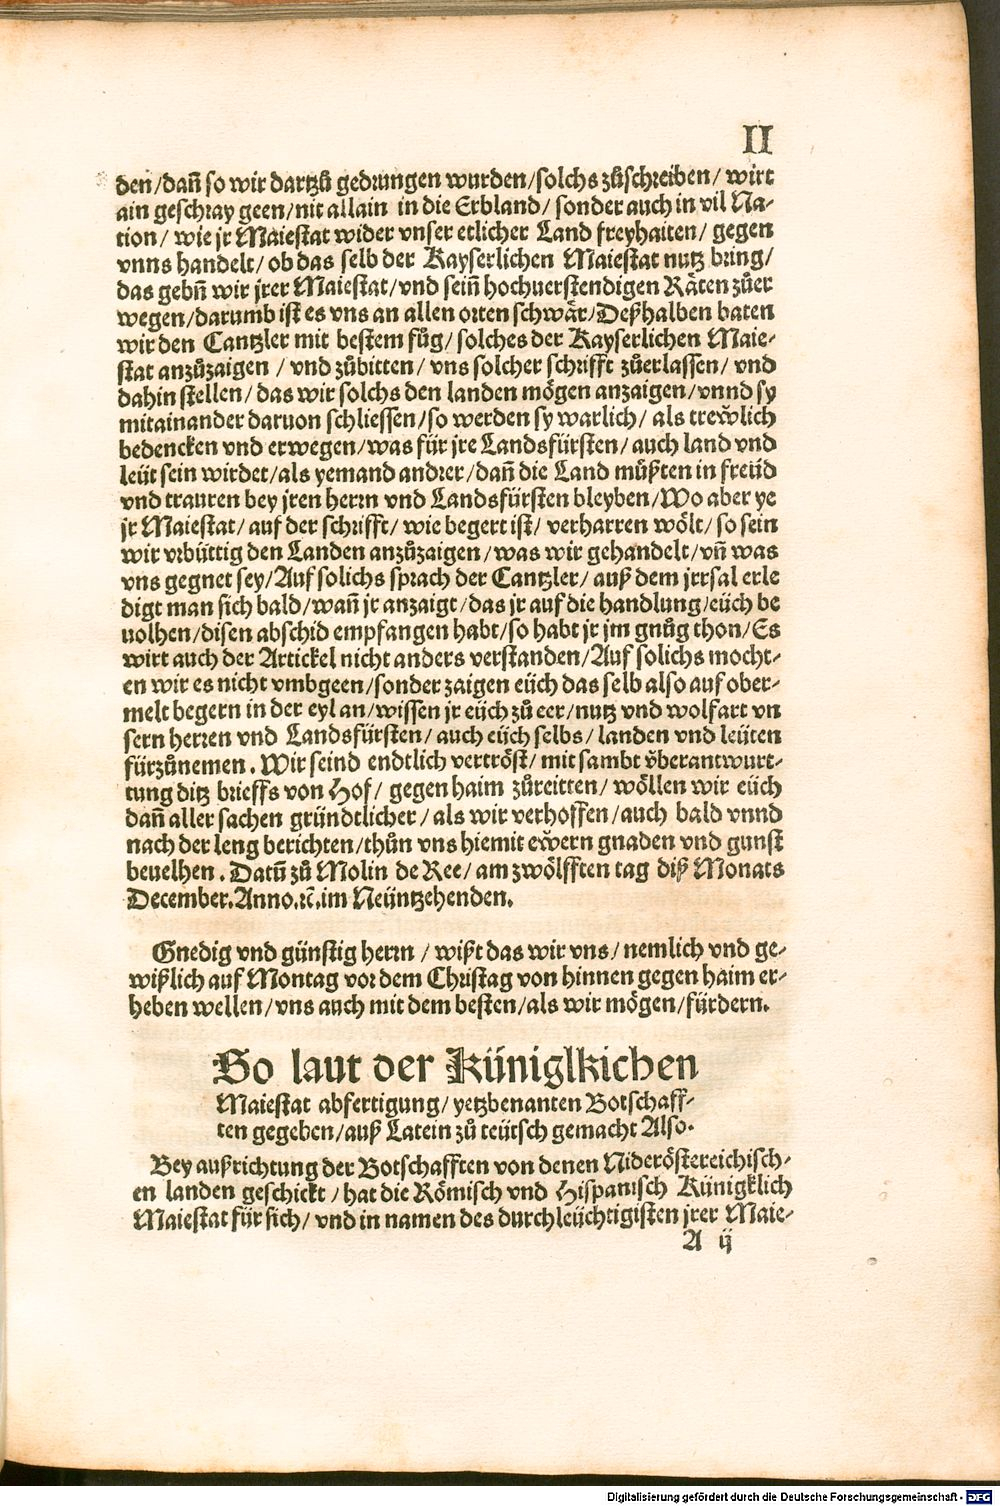 II
den/dañ so wir dartzů gedrungen wurden/solchs zůschreiben/ wirt
ain geschray geen/nit allain in die Erbland/ sonder auch in vil Na-
tion/ wie jr Maiestat wider vnser etlicher Land freyhaiten/ gegen
vnns handelt/ ob das selb der Kayserlichen Maiestat nutz bring/
das gebñ wir jrer Maiestat/vnd seiñ hochuerstendigen Räten zůer
wegen/darumb ist es vns an allen orten schwär/Deßhalben baten
wir den Cantzler mit bestem fůg/ solches der Kayserlichen Maie-
stat anzůzaigen / vnd zůbitten/ vns solcher schrifft zůerlassen/ vnd
dahin stellen/ das wir solchs den landen mögen anzaigen/vnnd sy
mitainander daruon schliessen/so werden sy warlich/ als trew̆lich
bedencken vnd erwegen/was für jre Landsfürsten/ auch land vnd
leüt sein wirdet/als yemand andrer/dañ die Land můßten in freüd
vnd trauren bey jren herrn vnd Landsfürsten bleyben/Wo aber ye
jr Maiestat/ auf der schrifft/ wie begert ist/ verharren wölt/ so sein
wir vrbüttig den Landen anzůzaigen/was wir gehandelt/vñ was
vns gegnet sey/Auf solichs sprach der Cantzler/ auß dem jrrsal erle
digt man sich bald/wañ jr anzaigt/das jr auf die handlung/eüch be
uolhen/disen abschid empfangen habt/so habt jr jm gnůg thon/Es
wirt auch der Artickel nicht anders verstanden/Auf solichs mocht-
en wir es nicht vmbgeen/sonder zaigen eüch das selb also auf ober-
melt begern in der eyl an/wissen jr eüch zů eer/nutz vnd wolfart vn
sern herren vnd Landsfürsten/ auch eüch selbs/ landen vnd leüten
fürzůnemen. Wir seind endtlich vertröst/ mit sambt v̆berantwurt-
tung ditz brieffs von Hof/ gegen haim zůreitten/ wöllen wir eüch
dañ aller sachen gründtlicher/ als wir verhoffen/auch bald vnnd
nach der leng berichten/thůn vns hiemit ew̆ern gnaden vnd gunst
beuelhen. Datũ zů Molin de Ree/ am zwölfften tag diß Monats
December.Anno.ꝛc̃.im Neüntzehenden.
Gnedig vnd günstig herrn / wißt das wir vns/ nemlich vnd ge-
wißlich auf Montag vor dem Christag von hinnen gegen haim er-
heben wellen/vns auch mit dem besten/als wir mögen/fürdern.
So laut der Küniglkichen
Maiestat abfertigung/ yetzbenanten Botschaff-
ten gegeben/auß Latein zů teütsch gemacht Also.
Bey außrichtung der Botschafften von denen Niderösterreichisch-
en landen geschickt / hat die Römisch vnd Hispanisch Künigklich
Maiestat für sich/ vnd in namen des durchleüchtigisten jrer Maie-
A ij
Digitalisierung gefördert durch die Deutsche Forschungsgemeinschaft - DFG